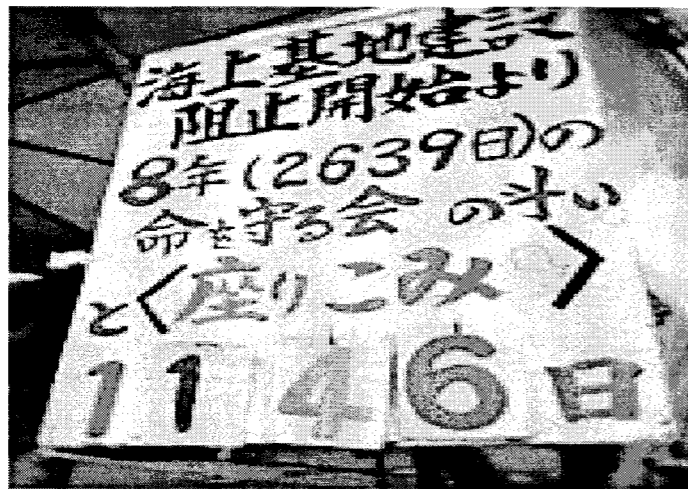 海上基地建設
阻止開始より
8年(2639日)の
命を守る会 の斗い
と〈座りこみ 〉
1146日